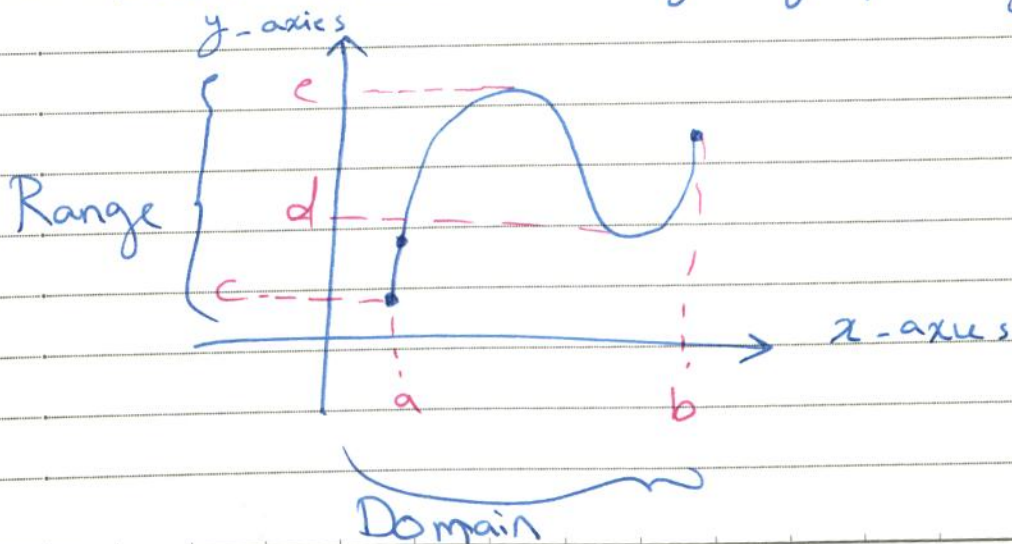 y-axies
e
Range
d
c
x-axies
a
b
Domain